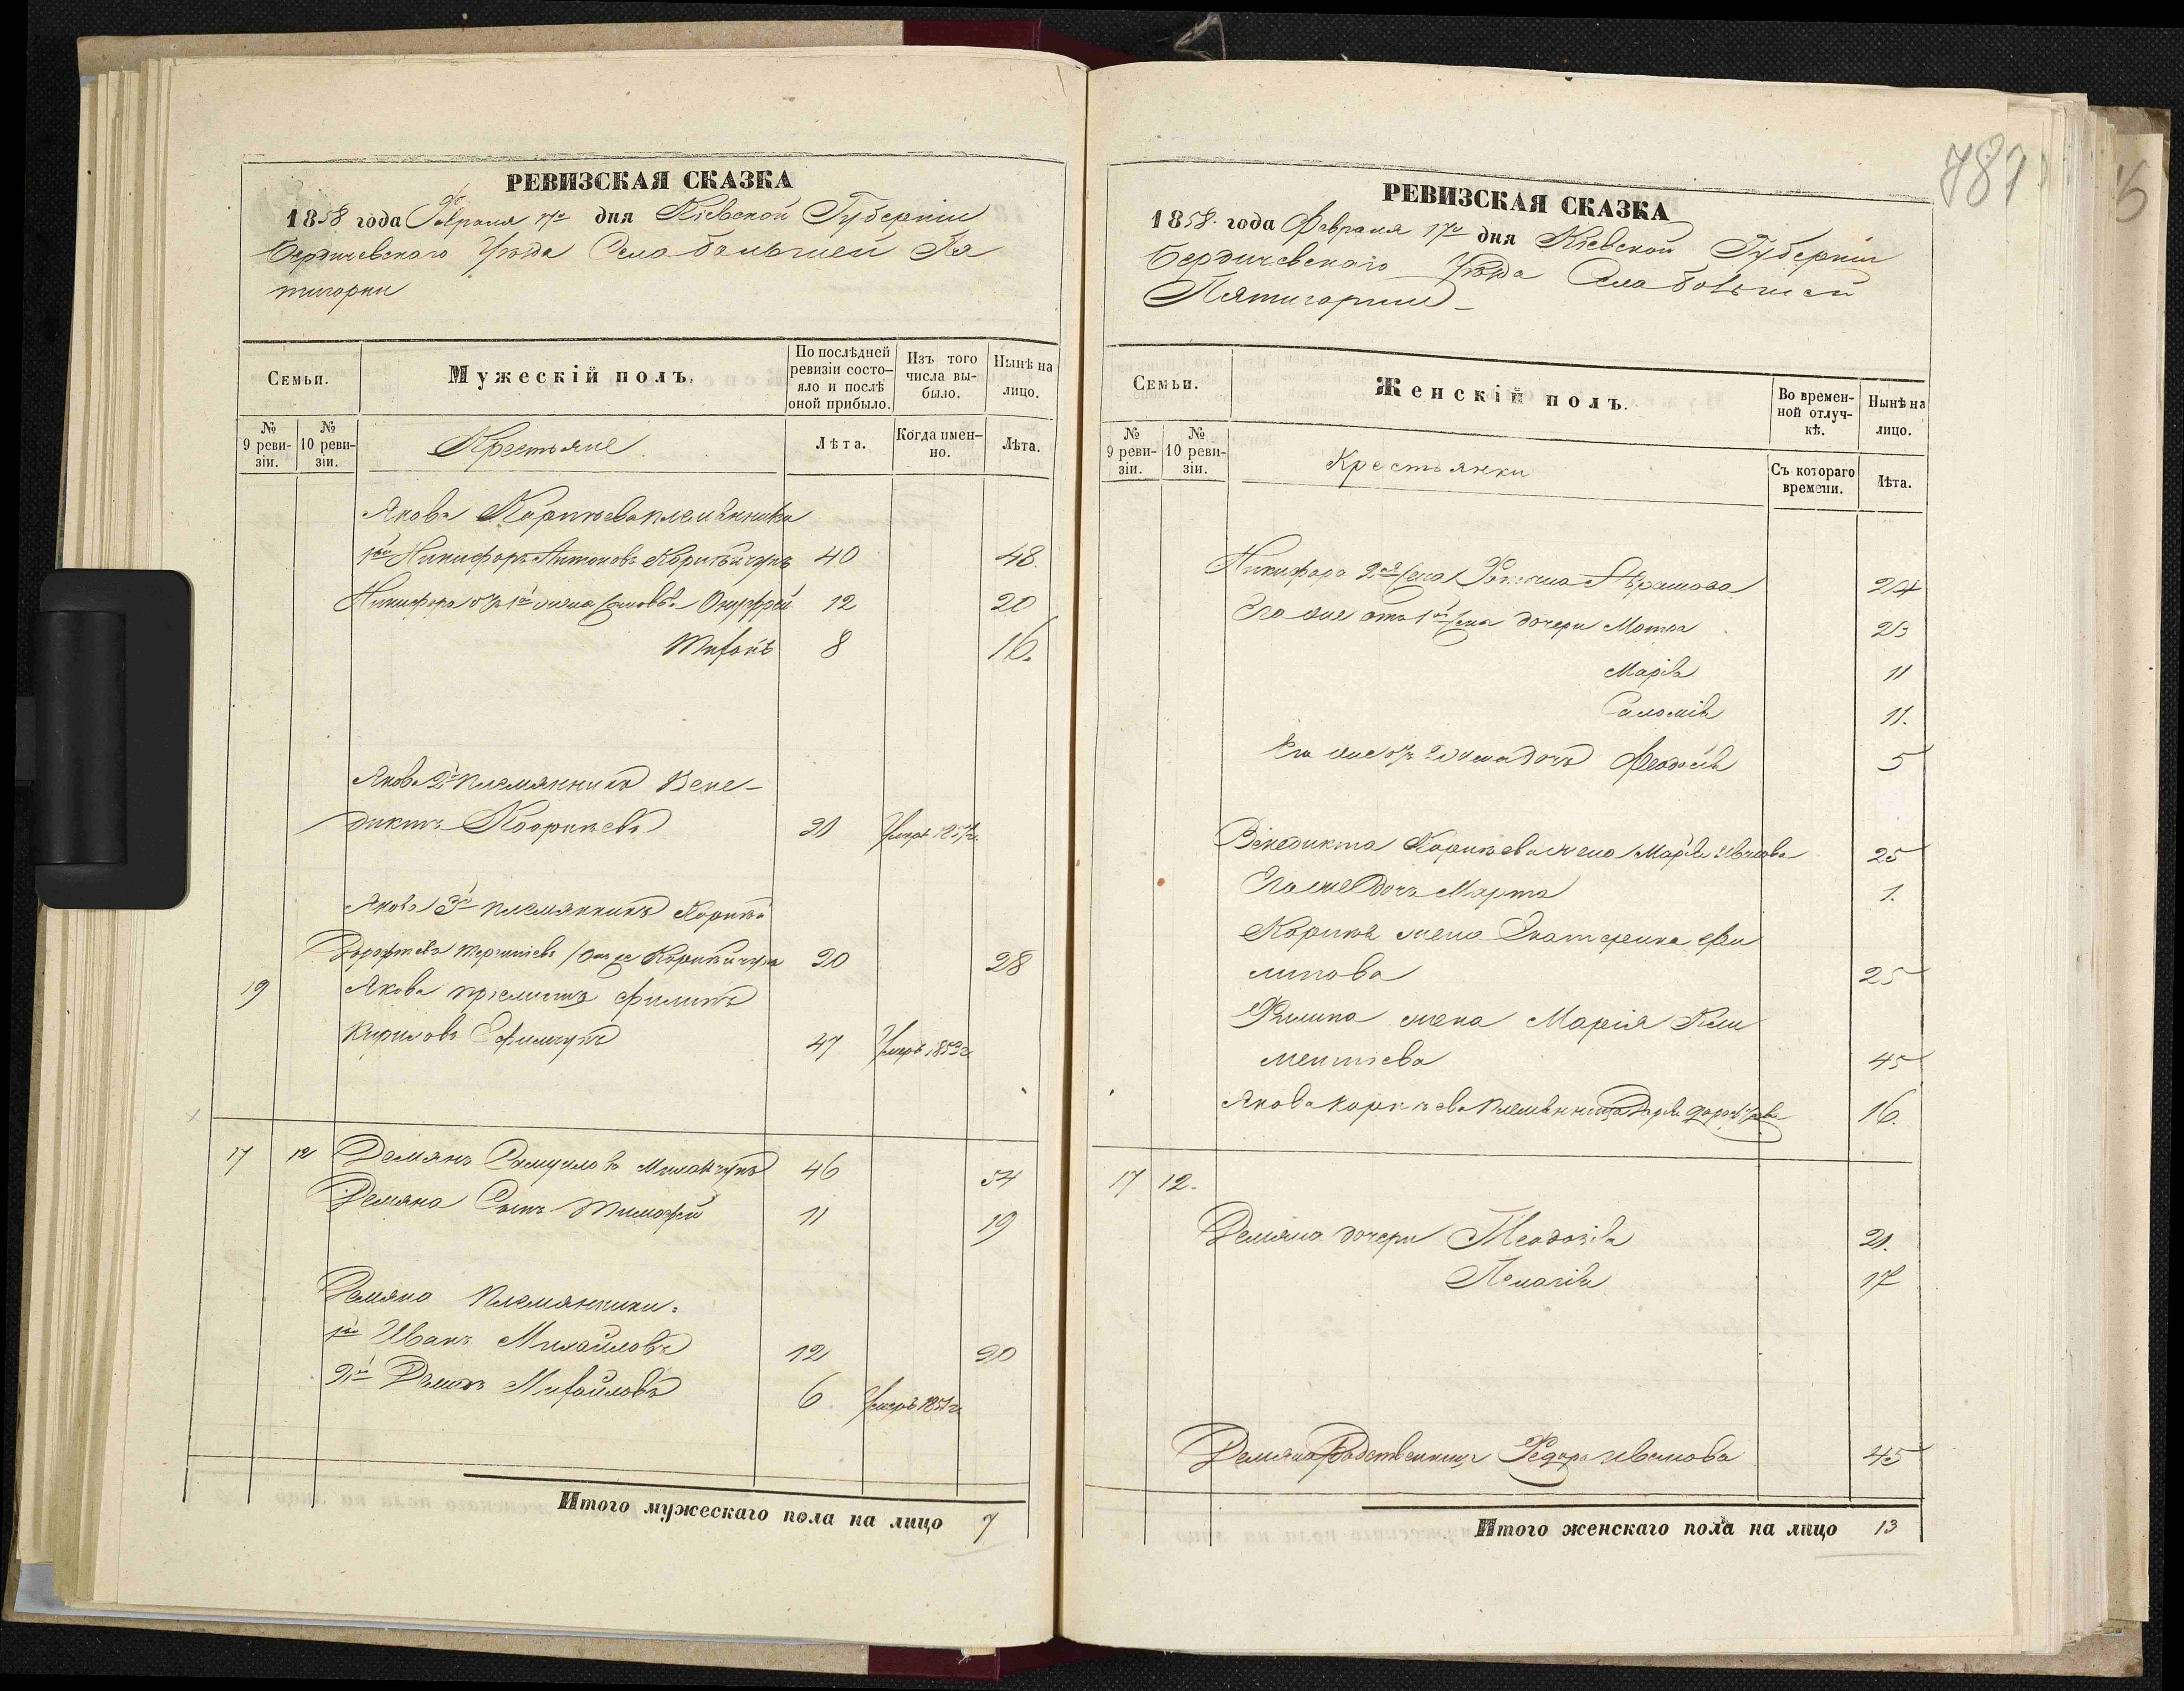 РЕВИЗСКАЯ СКАЗКА
1858 года Февраля 17го дня Кіевской Губерніи
Бердичевского Уѣзда Села большей Пя
тигорки
Семьи.
Мужескій полъ.
По послѣдней ревизіи состояло и послѣ оной прибыло.
Изъ того числа выбыло.
Нынѣ на лицо.
№ 9 ревизіи.
№ 10 ревизіи.
Крестьяне
Лѣта.
Когда именно.
Лѣта.
Якова Корнѣева племянника
1й Никифоръ Антоновъ 40 48.
Никифора отъ 1й жены Онуфрей 12 20
8 16.
Якова 2й племянникъ Вене-
диктъ 20 Умеръ
Якова 3й племянникъ Корнѣй
20 28
19 Якова пріемышъ Филипъ
Кириловъ 47 Умеръ 1853 г.
17 12 Демянъ Самуиловъ 46 54
Демяна Сынъ Тимофей 11 19
Демяна Племянники:
1й Иванъ Михайловъ 12 20
2й Михайловъ 6 Умеръ 1851 г.
Итого мужескаго пола на лицо 7
781
РЕВИЗСКАЯ СКАЗКА
1858. года Февраля 17го дня Кіевской Губерніи
Бердичевскаго Уѣзда Села большей
Пятигорки
Семьи.
Женскій полъ.
Во временной отлучкѣ.
Нынѣ на лицо.
№ 9 ревизіи.
№ 10 ревизіи.
Крестьянки
Съ котораго времени.
Лѣта.
Никифора 2я жена 24
Его же отъ 1й жены дочери 23
Марія 11
Саломія 11.
Его же отъ 2й жены дочь Феодосія 5
Венедикта Корнѣева жена Марія 25
Его же дочь Марта 1.
Корнѣя жена Екатерина Фи
липова 25
Филипа жена Марія Кли
ментіева 45
Якова Корнѣева Племянница 16.
17 12.
Демяна дочери Феодосія 21.
Пелагія 17
Демяна Родственница Иванова 45
Итого женскаго пола на лицо 13